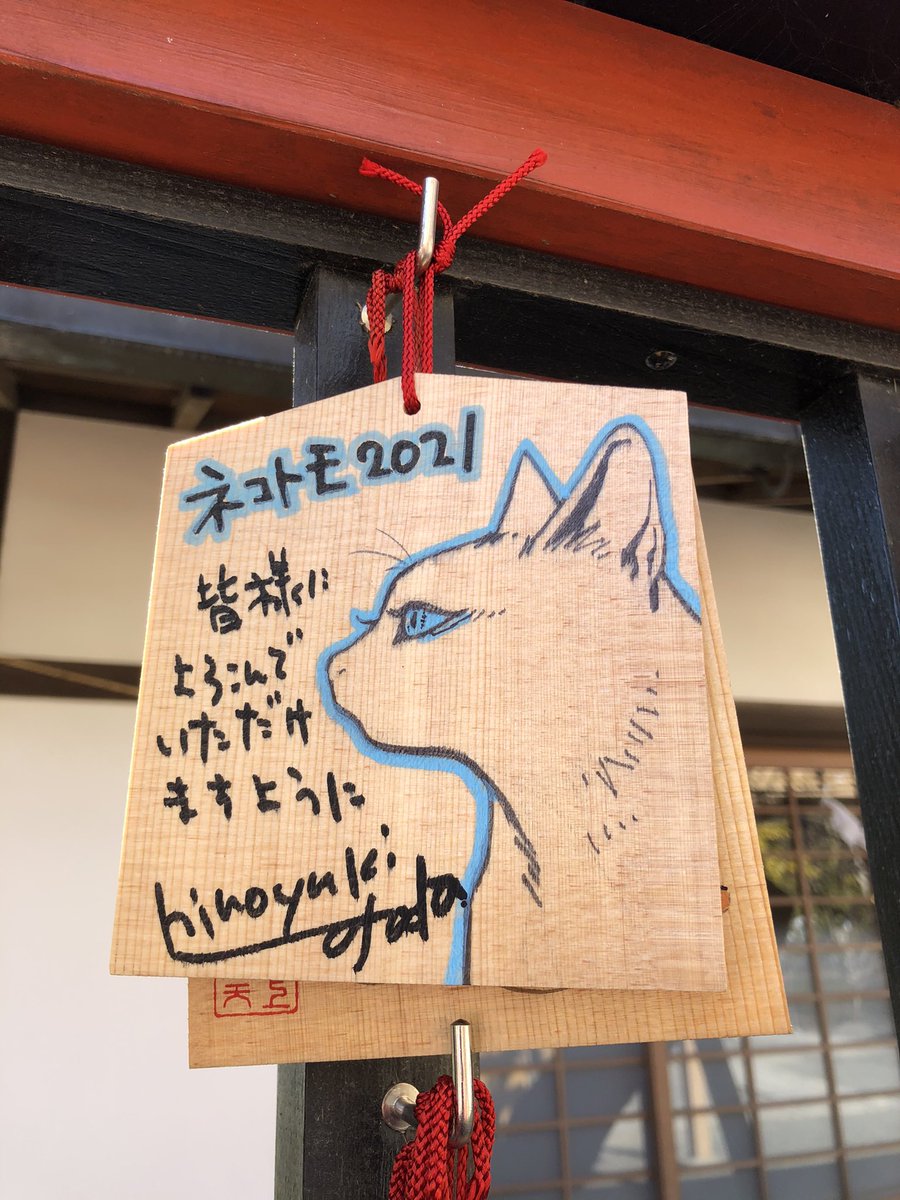 ネコトモ2021
皆様に
よろこんで
いただけ
ますように
hiroyuki
otada